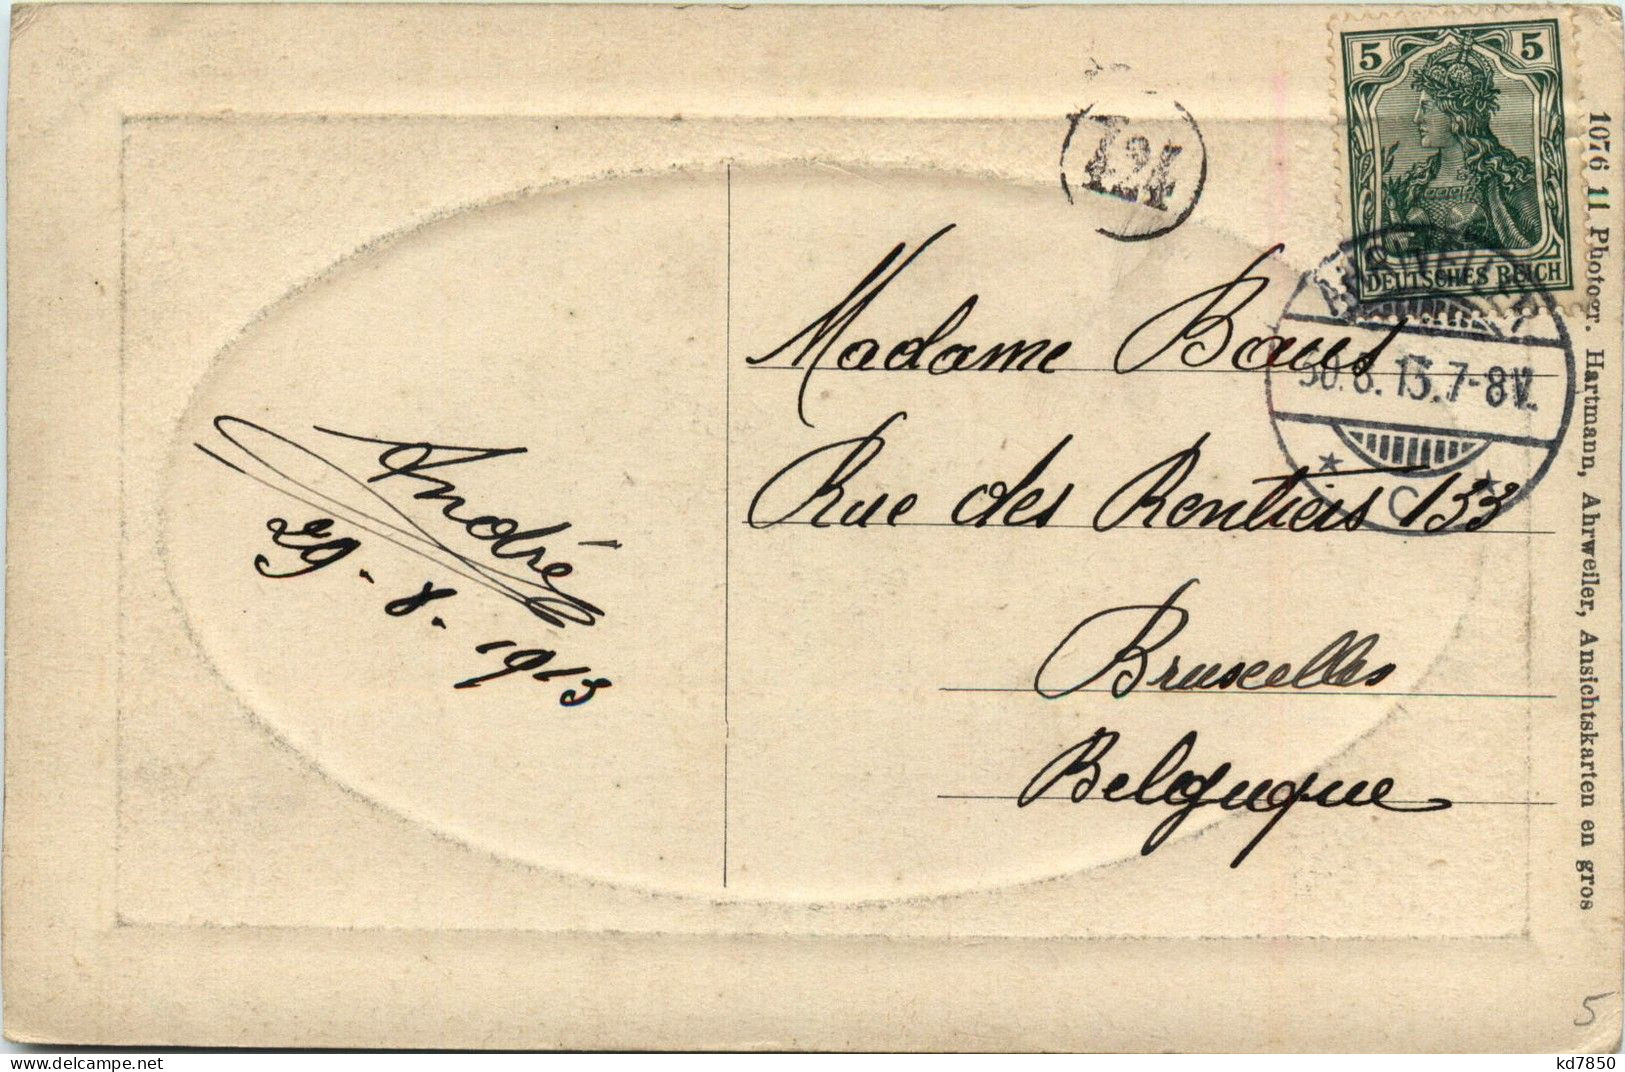 5 5
DEUTSCHES REICH
AHRWEILER
30.8.13.7-8V.
C
André
29-8-1913
Madame Baus
Rue des Rentiers 133
Bruxelles
Belgique
1076 11 Photogr. Hartmann, Ahrweiler, Ansichtskarten en gros
5
kd7850